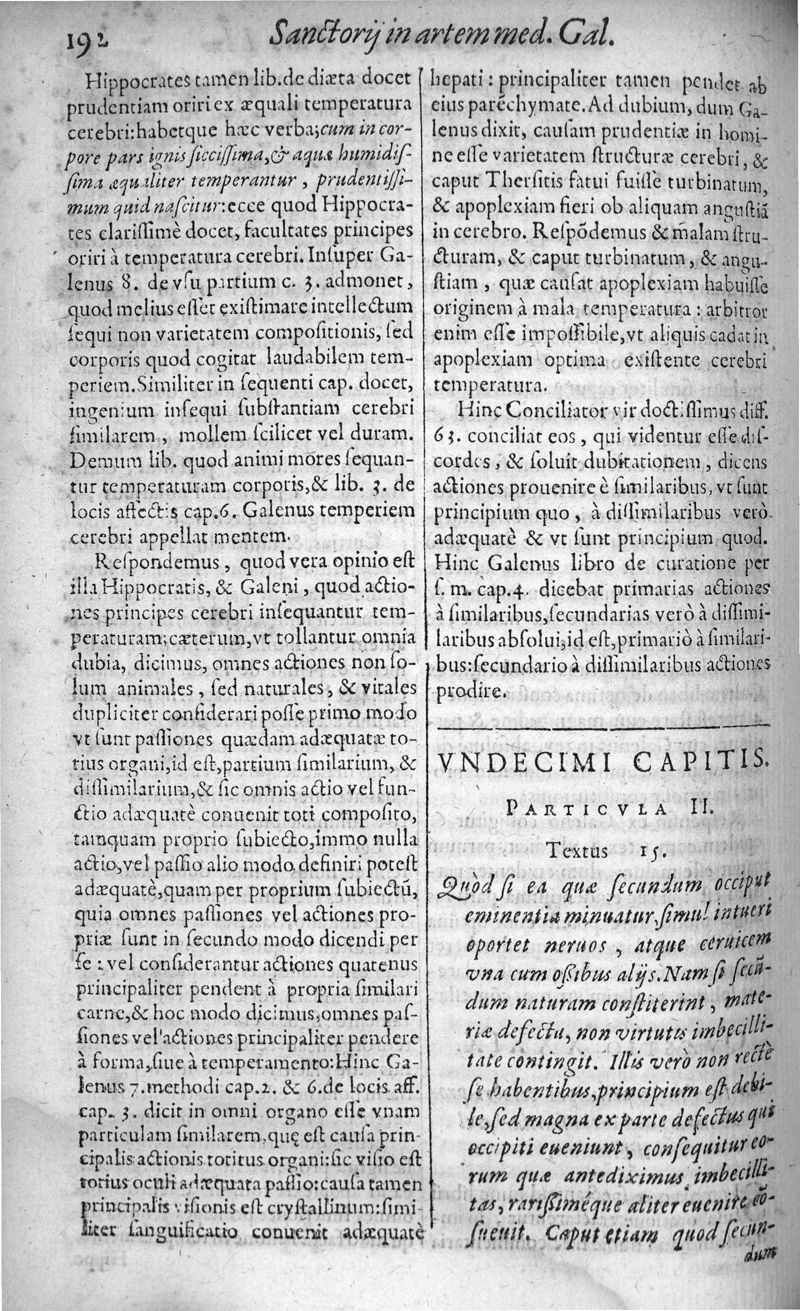 192 Sanctorij in artem med. Gal.
Hippocrates tamen lib.de diæta docet
prudentiam oriri ex æquali temperatura
cerebri:habetque hæc verba;cum in cor-
pore pars ignis ſicciſſima,& aqua humidiſ-
ſima æqualiter temperantur, prudentiſſi-
mum quid naſcitur:ecce quod Hippocra-
tes clariſſimè docet, facultates principes
oriri à temperatura cerebri. Inſuper Ga-
lenus 8. de vſu partium c. 3. admonet,
quod melius eſſet exiſtimare intellectum
ſequi non varietatem compoſitionis, ſed
corporis quod cogitat laudabilem tem-
periem.Similiter in ſequenti cap. docet,
ingenium inſequi ſubſtantiam cerebri
ſimilarem, mollem ſcilicet vel duram.
Demum lib. quod animi mores ſequan-
tur temperaturam corporis,& lib. 3. de
locis affectis cap.6. Galenus temperiem
cerebri appellat mentem.
Reſpondemus, quod vera opinio eſt
illa Hippocratis, & Galeni, quod actio-
nes principes cerebri inſequantur tem-
peraturam;cæterum,vt tollantur omnia
dubia, dicimus, omnes actiones non ſo-
lum animales, ſed naturales, & vitales
dupliciter conſiderari poſſe primo modo
vt ſunt paſſiones quædam adæquatæ to-
tius organi,id eſt,partium ſimilarium, &
diſſimilarium,& ſic omnis actio vel fun-
ctio adæquatè conuenit toti compoſito,
tamquam proprio ſubiecto,immo nulla
actio,vel paſſio alio modo definiri poteſt
adæquatè,quam per proprium ſubiectũ,
quia omnes paſſiones vel actiones pro-
priæ ſunt in ſecundo modo dicendi per
ſe : vel conſiderantur actiones quatenus
principaliter pendent à propria ſimilari
carne,& hoc modo dicimus,omnes paſ-
ſiones vel actiones principaliter pendere
à forma,ſiue à temperamento:Hinc Ga-
lenus 7.methodi cap.2. & 6.de locis aff.
cap. 3. dicit in omni organo eſſe vnam
particulam ſimilarem,quę eſt cauſa prin-
cipalis actionis totitus organi:ſic viſio eſt
totius oculi adæquata paſſio:cauſa tamen
principalis viſionis eſt cryſtallinum:ſimi-
liter ſanguificatio conuenit adæquatè
hepati : principaliter tamen pendet ab
eius parẽchymate.Ad dubium, dum Ga-
lenus dixit, cauſam prudentiæ in homi-
ne eſſe varietatem ſtructuræ cerebri, &
caput Therſitis fatui fuiſſe turbinatum,
& apoplexiam fieri ob aliquam anguſtiã
in cerebro. Reſpõdemus & malam ſtru-
cturam, & caput turbinatum, & angu-
ſtiam, quæ cauſat apoplexiam habuiſſe
originem à mala temperatura : arbitror
enim eſſe impoſſibile,vt aliquis cadat in
apoplexiam optima exiſtente cerebri
temperatura.
Hinc Conciliator vir doctiſſimus diff.
63. conciliat eos, qui videntur eſſe diſ-
cordes, & ſoluit dubitationem, dicens
actiones prouenire è ſimilaribus, vt ſunt
principium quo, à diſſimilaribus verò
adæquatè & vt ſunt principium quod.
Hinc Galenus libro de curatione per
ſ. m. cap.4. dicebat primarias actiones
à ſimilaribus,ſecundarias verò à diſſimi-
laribus abſolui,id eſt,primariò à ſimilari-
bus:ſecundario à diſſimilaribus actiones
prodire.
VNDECIMI CAPITIS.
PARTICVLA II.
Textus 15.
Quòd ſi ea quæ ſecundum occiput
eminentia minuatur,ſimul intueri
oportet neruos, atque ceruicem
vna cum oſſibus alijs.Nam ſi ſecũ-
dum naturam conſtiterint, mate-
riæ defectu, non virtutis imbecilli-
tate contingit. Illis verò non rectè
ſe habentibus,principium eſt debi-
le,ſed magna ex parte defectus qui
occipiti eueniunt, conſequitur eo-
rum quæ antediximus imbecilli-
tas, rariſſiméque aliter euenire co-
ſueuit. Caput etiam quod ſecun-
dum